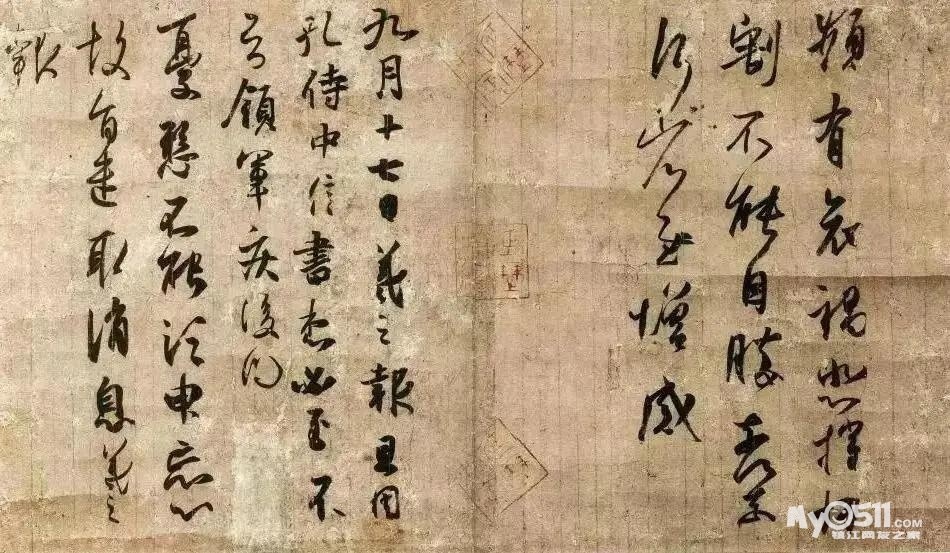 頻有哀禍悲摧切
割不能自勝奈何奈
何省慰增感
九月十七日羲之報且因
孔侍中信書想必至不
知領軍疾後問
憂懸不能須臾忘心
故旨遣取消息羲之
報
My0511.COM
镇江网友之家